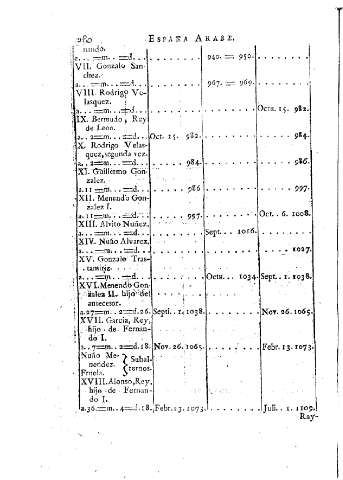 280 ESPAÑA ARABE.
nando.
a...=m...=d . . . . . . . . 940. = 950. . . . . . . . .
VII. Gonzalo San-
chez.
a...=m...=d . . . . . . . . 967. = 969. . . . . . . . .
VIII. Rodrigo Ve-
lasquez.
a...=m...=d . . . . . . . . . . . . . . . . Octu. 15. 982.
IX. Bermudo, Rey
de Leon.
a..2=m...=d Oct. 15. 982. . . . . . . . . . 984.
X. Rodrigo Velas-
quez, segunda vez.
a..2=m...=d . . . . . 984. . . . . . . . . . 986.
XI. Guillermo Gon-
zalez.
a.11=m...=d . . . . . 986 . . . . . . . . . 997.
XII. Menendo Gon-
zalez I.
a.11=m...=d . . . . . 997. . . . . . . . . . Oct. 6. 1008.
XIII. Alvito Nuñez.
a...=m...=d . . . . . . . . Sept... 1016. . . . . . . . .
XIV. Nuño Alvarez.
a...=m...=d . . . . . . . . . . . . . . . . 1027.
XV. Gonzalo Tras-
tamirez.
a...=m...=d . . . . . . . . Octu... 1034. Sept. 1. 1038.
XVI. Menendo Gon-
zalez II. hijo del
antecesor.
a.27=m..2=d.26. Septi. 1. 1038. . . . . . . . . Nov. 26. 1065.
XVII. Garcia, Rey,
hijo de Fernan-
do I.
a..7=m..2=d.18. Nov. 26. 1065. . . . . . . . . Febr. 13. 1073.
Nuño Me-
nendez. } Subal-
Fruela. ternos.
XVIII. Alonso, Rey,
hijo de Fernan-
do I.
a.36.=m..4=d.18. Febr. 13. 1073. . . . . . . . . Juli. 1. 1109.
Ray-